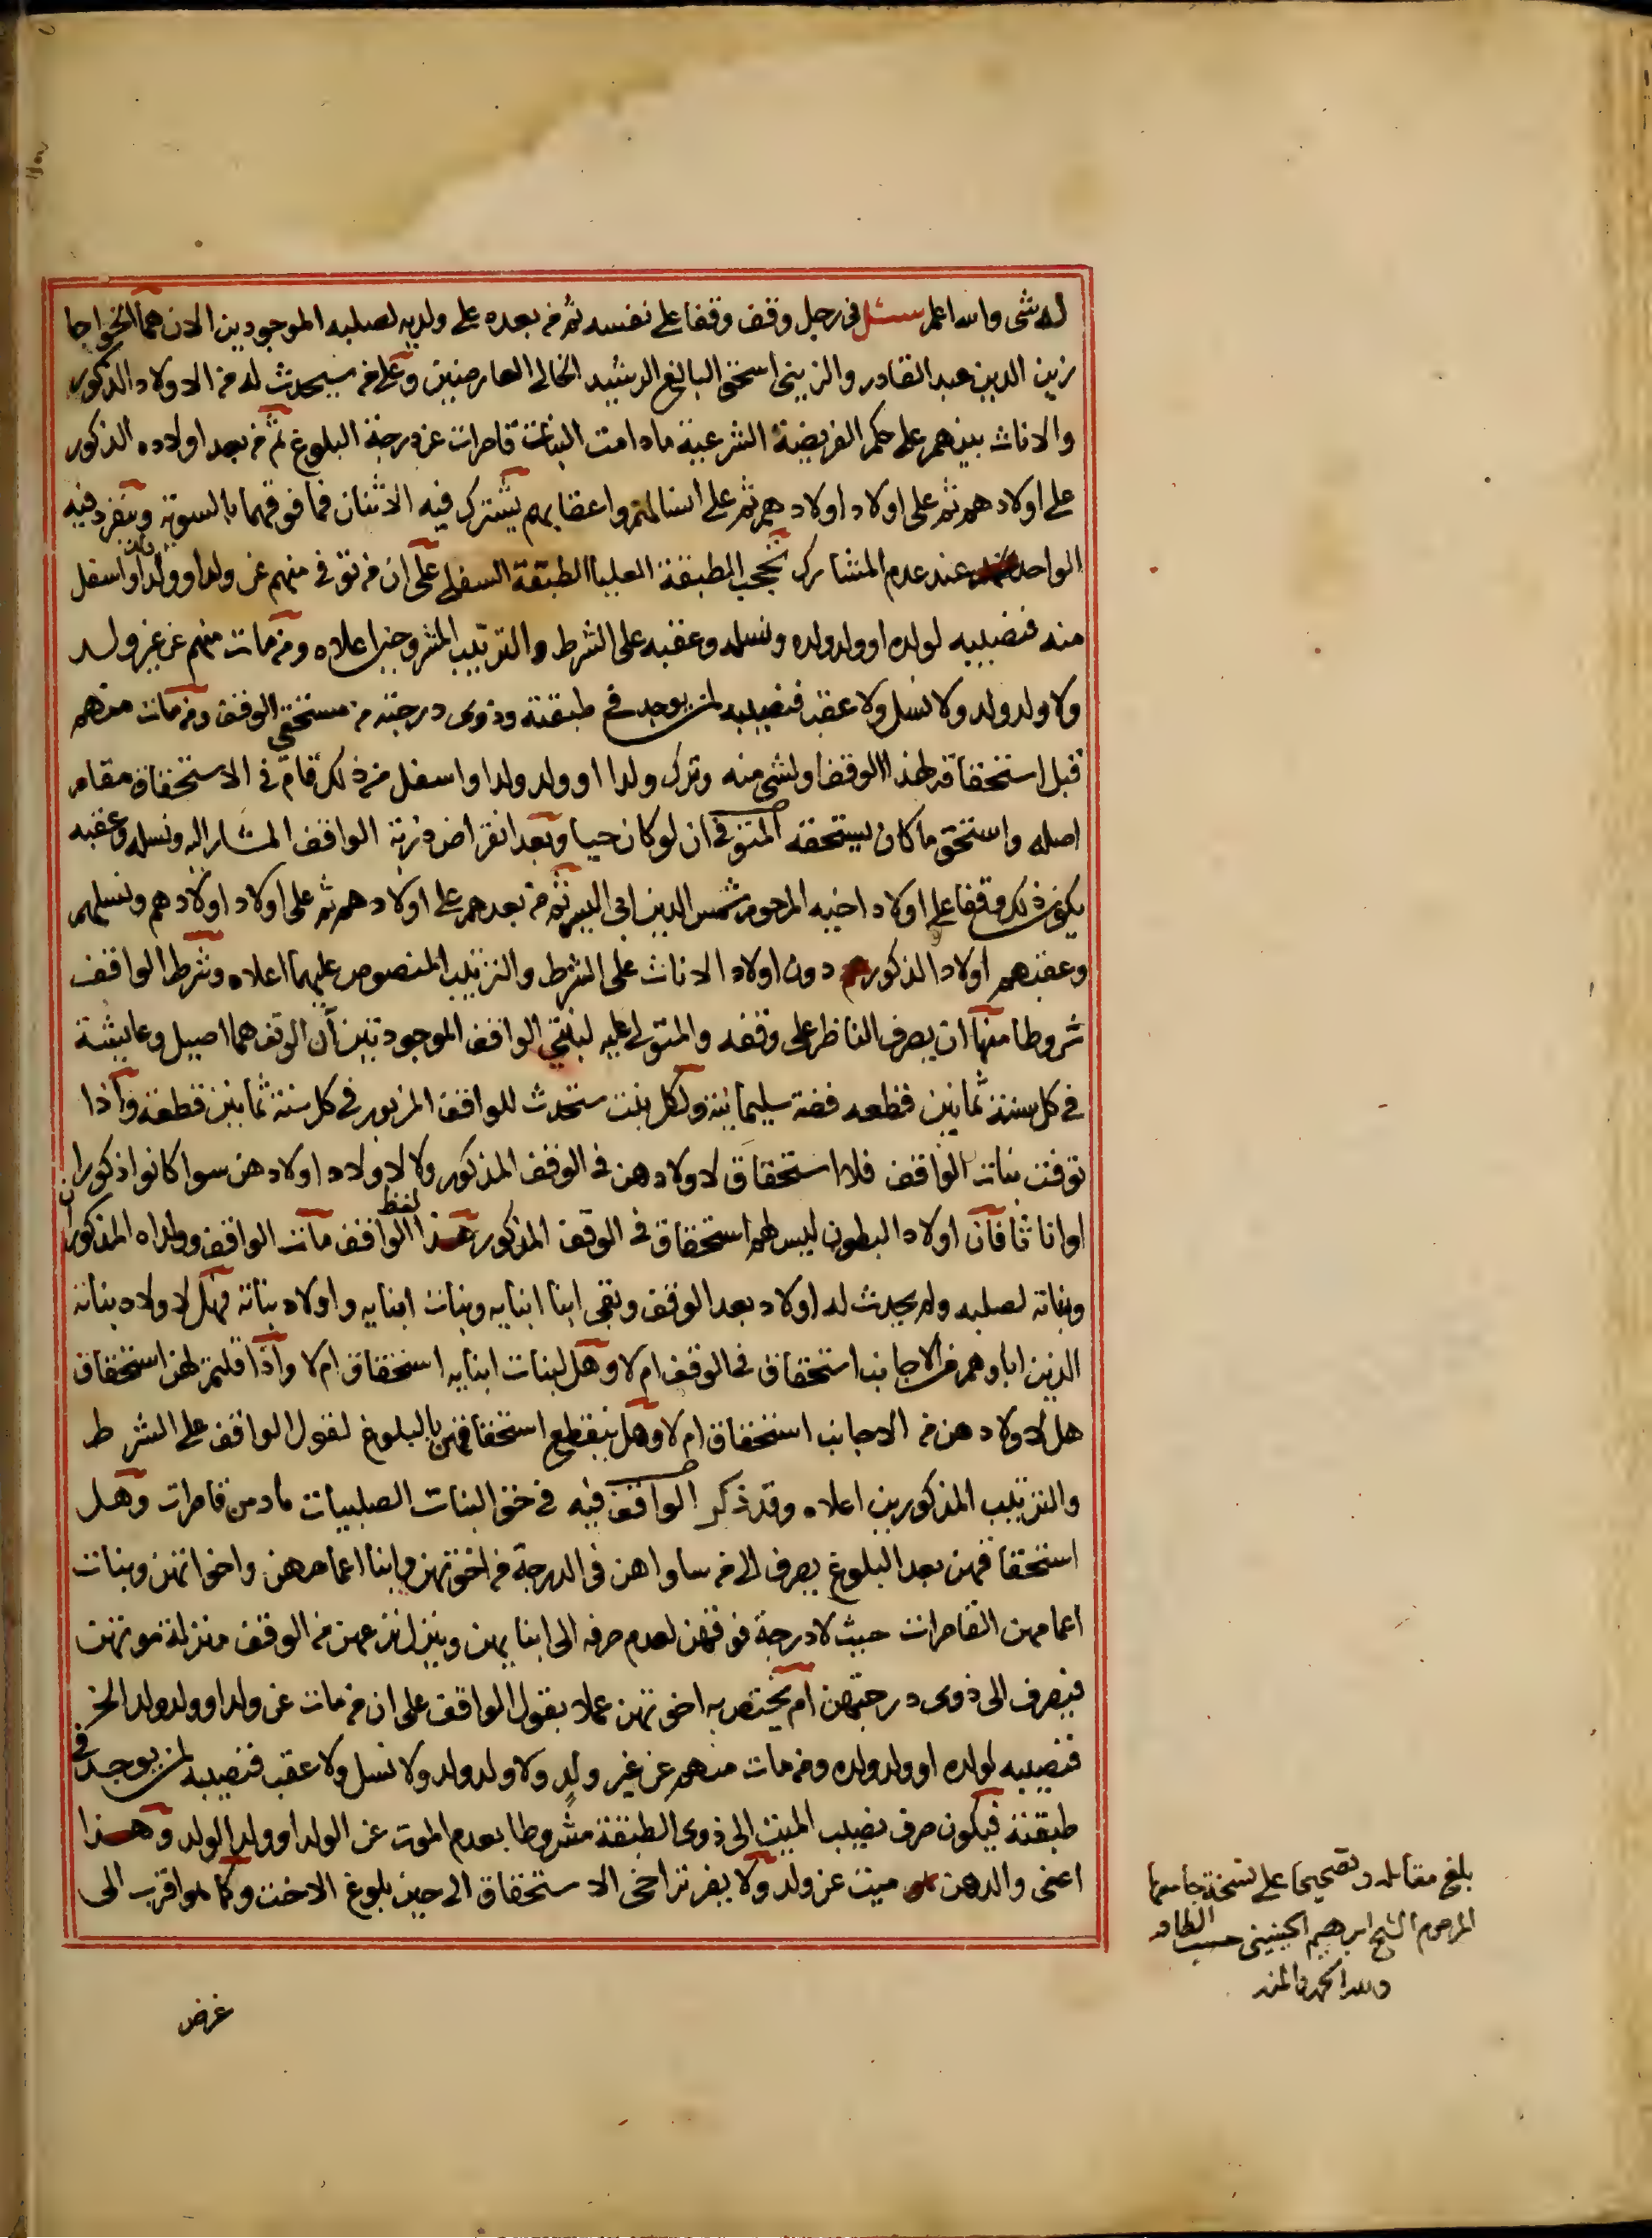 له شى والله اعلم سئل فى رجل وقف وقفا على نفسه ثم من بعده على ولديه لصلبه الموجودين الان هما الخواجا
زين الدين عبد القادر والزينى اسحق البالغ الرشيد الخالى العارضين وعلى من سيحدث له من الاولاد الذكور
والاناث بينهم على حكم الفريضة الشرعية ما دامت البنات قاصرات عن درجة البلوغ ثم من بعد اولاده الذكور
على اولادهم ثم على اولاد اولادهم ثم على انسالهم واعقابهم يشترك فيه الاثنان فما فوقهما بالسوية وينفرد فيه
الواحد عند عدم المشارك تحجب الطبقة العليا الطبقة السفلى على ان من توفى منهم عن ولد او ولد ولد او اسفل
منه فنصيبه لولده او ولد ولده ونسله وعقبه على الشرط والترتيب المشروحين اعلاه ومن مات منهم عن غير ولد
ولا ولد ولد ولا نسل ولا عقب فنصيبه لمن يوجد فى طبقته وذوى درجته من مستحقى الوقف ومن مات منهم
قبل استحقاقه لهذا الوقف او لشى منه وترك ولدا او ولد ولد او اسفل من ذلك قام فى الاستحقاق مقام
اصله واستحق ما كان يستحقه المتوفى ان لو كان حيا وبعد انقراض ذرية الواقف المشار اليه ونسله وعقبه
يكون ذلك وقفا على اولاد اخيه المرحوم شمس الدين ابى اليسر ثم من بعدهم على اولادهم ثم على اولاد اولادهم ونسلهم
وعقبهم اولاد الذكور دون اولاد الاناث على الشرط والترتيب المنصوص عليهما اعلاه وشرط الواقف
شروطا منها ان يصرف الناظر على وقفه والمتولى عليه لبنتى الواقف الموجودتين آن الوقف هما اصيل وعايشة
فى كل سنة ثمانين قطعه فضة سليمانية ولكل بنت ستحدث للواقف المزبور فى كل سنة ثمانين قطعة واذا
توفت بنات الواقف فلا استحقاق لاولادهن فى الوقف المذكور ولا لاولاد اولادهن سوا كانوا ذكورا
او اناثا فان اولاد البطون ليس لهم استحقاق فى الوقف المذكور هذا لفظ الواقف مات الواقف وولداه المذكوران
وبناته لصلبه ولم يحدث له اولاد بعد الوقف وبقى ابنا ابنايه وبنات ابنايه واولاد بناته فهل لاولاد بناته
الذين اباوهم من الاجانب استحقاق فى الوقف ام لا وهل لبنات ابنايه استحقاق ام لا واذا قلتم لهن استحقاق
هل لاولادهن من الاجانب استحقاق ام لا وهل ينقطع استحقاقهن بالبلوغ لقول الواقف على الشرط
والترتيب المذكورين اعلاه وقد ذكر الواقف فيه فى حق البنات الصلبيات ما دمن قاصرات وهل
استحقاقهن بعد البلوغ يصرف الى من ساواهن فى الدرجة من اخوتهن وابنا اعمامهن واخواتهن وبنات
اعمامهن القاصرات حيث لا درجة فوقهن لعدم صرفه الى ابنايهن وينزل نزعهن من الوقف منزلة موتهن
فيصرف الى ذوى درجتهن ام يختص به اخوتهن عملا بقول الواقف على ان من مات عن ولد او ولد ولد الخ
فنصيبه لولده او ولد ولده ومن مات منهم عن غير ولد ولا ولد ولد ولا نسل ولا عقب فنصيبه لمن يوجد فى
طبقته فيكون صرف نصيب الميت الى ذوى الطبقة مشروطا بعدم الموت عن الولد او ولد الولد وهذا
اعنى والدهن ميت عن ولد ولا يضر تراخى الاستحقاق الى حين بلوغ الاخت وكما هو اقرب الى
غرض
بلغ مقابله وتصحيحا على نسخة جامعها
المرحوم الشيخ ابرهيم الجينينى حسب الطاقه
ولله الحمد والمنه